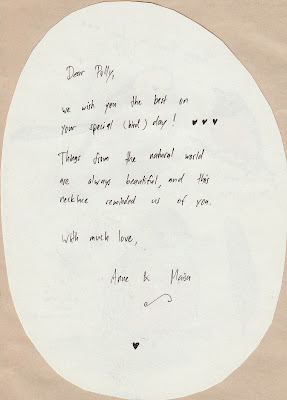 Dear Polly,
we wish you the best on
your special (bird) day! ♥ ♥ ♥
Things from the natural world
are always beautiful, and this
necklace reminded us of you.
With much love,
Anne & Maisa
♥